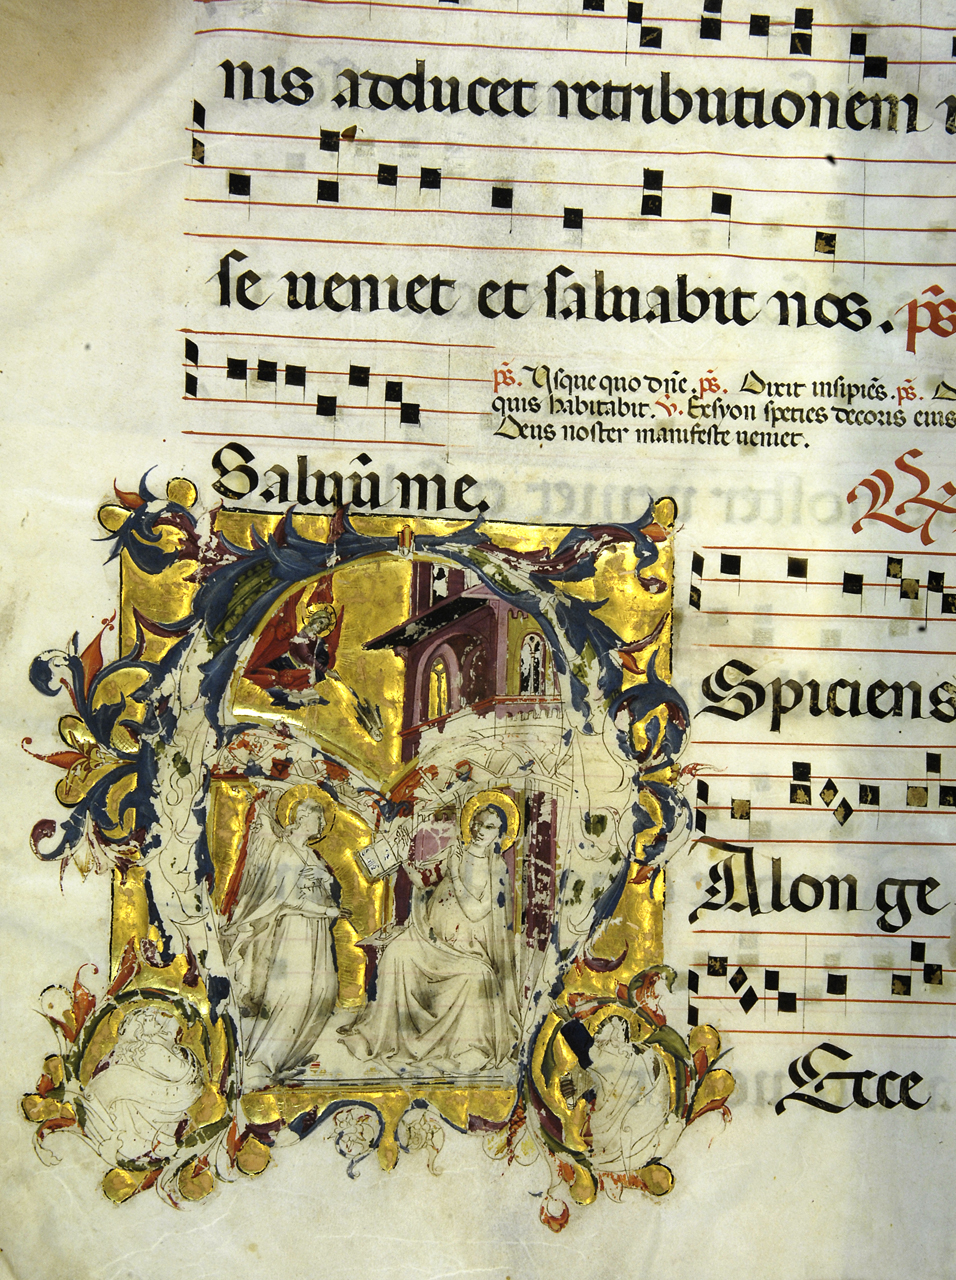 nis adducet retributionem
se ueniet et saluabit nos. ps̄
ps̄. Vsque quo dn̄e. ps̄. Dixit insipiēs. ps̄.
quis habitabit. V. Exsyon species decoris eius
Deus noster manifeste ueniet.
Saluū me.
Rx
Spiciens
A longe
Ecce